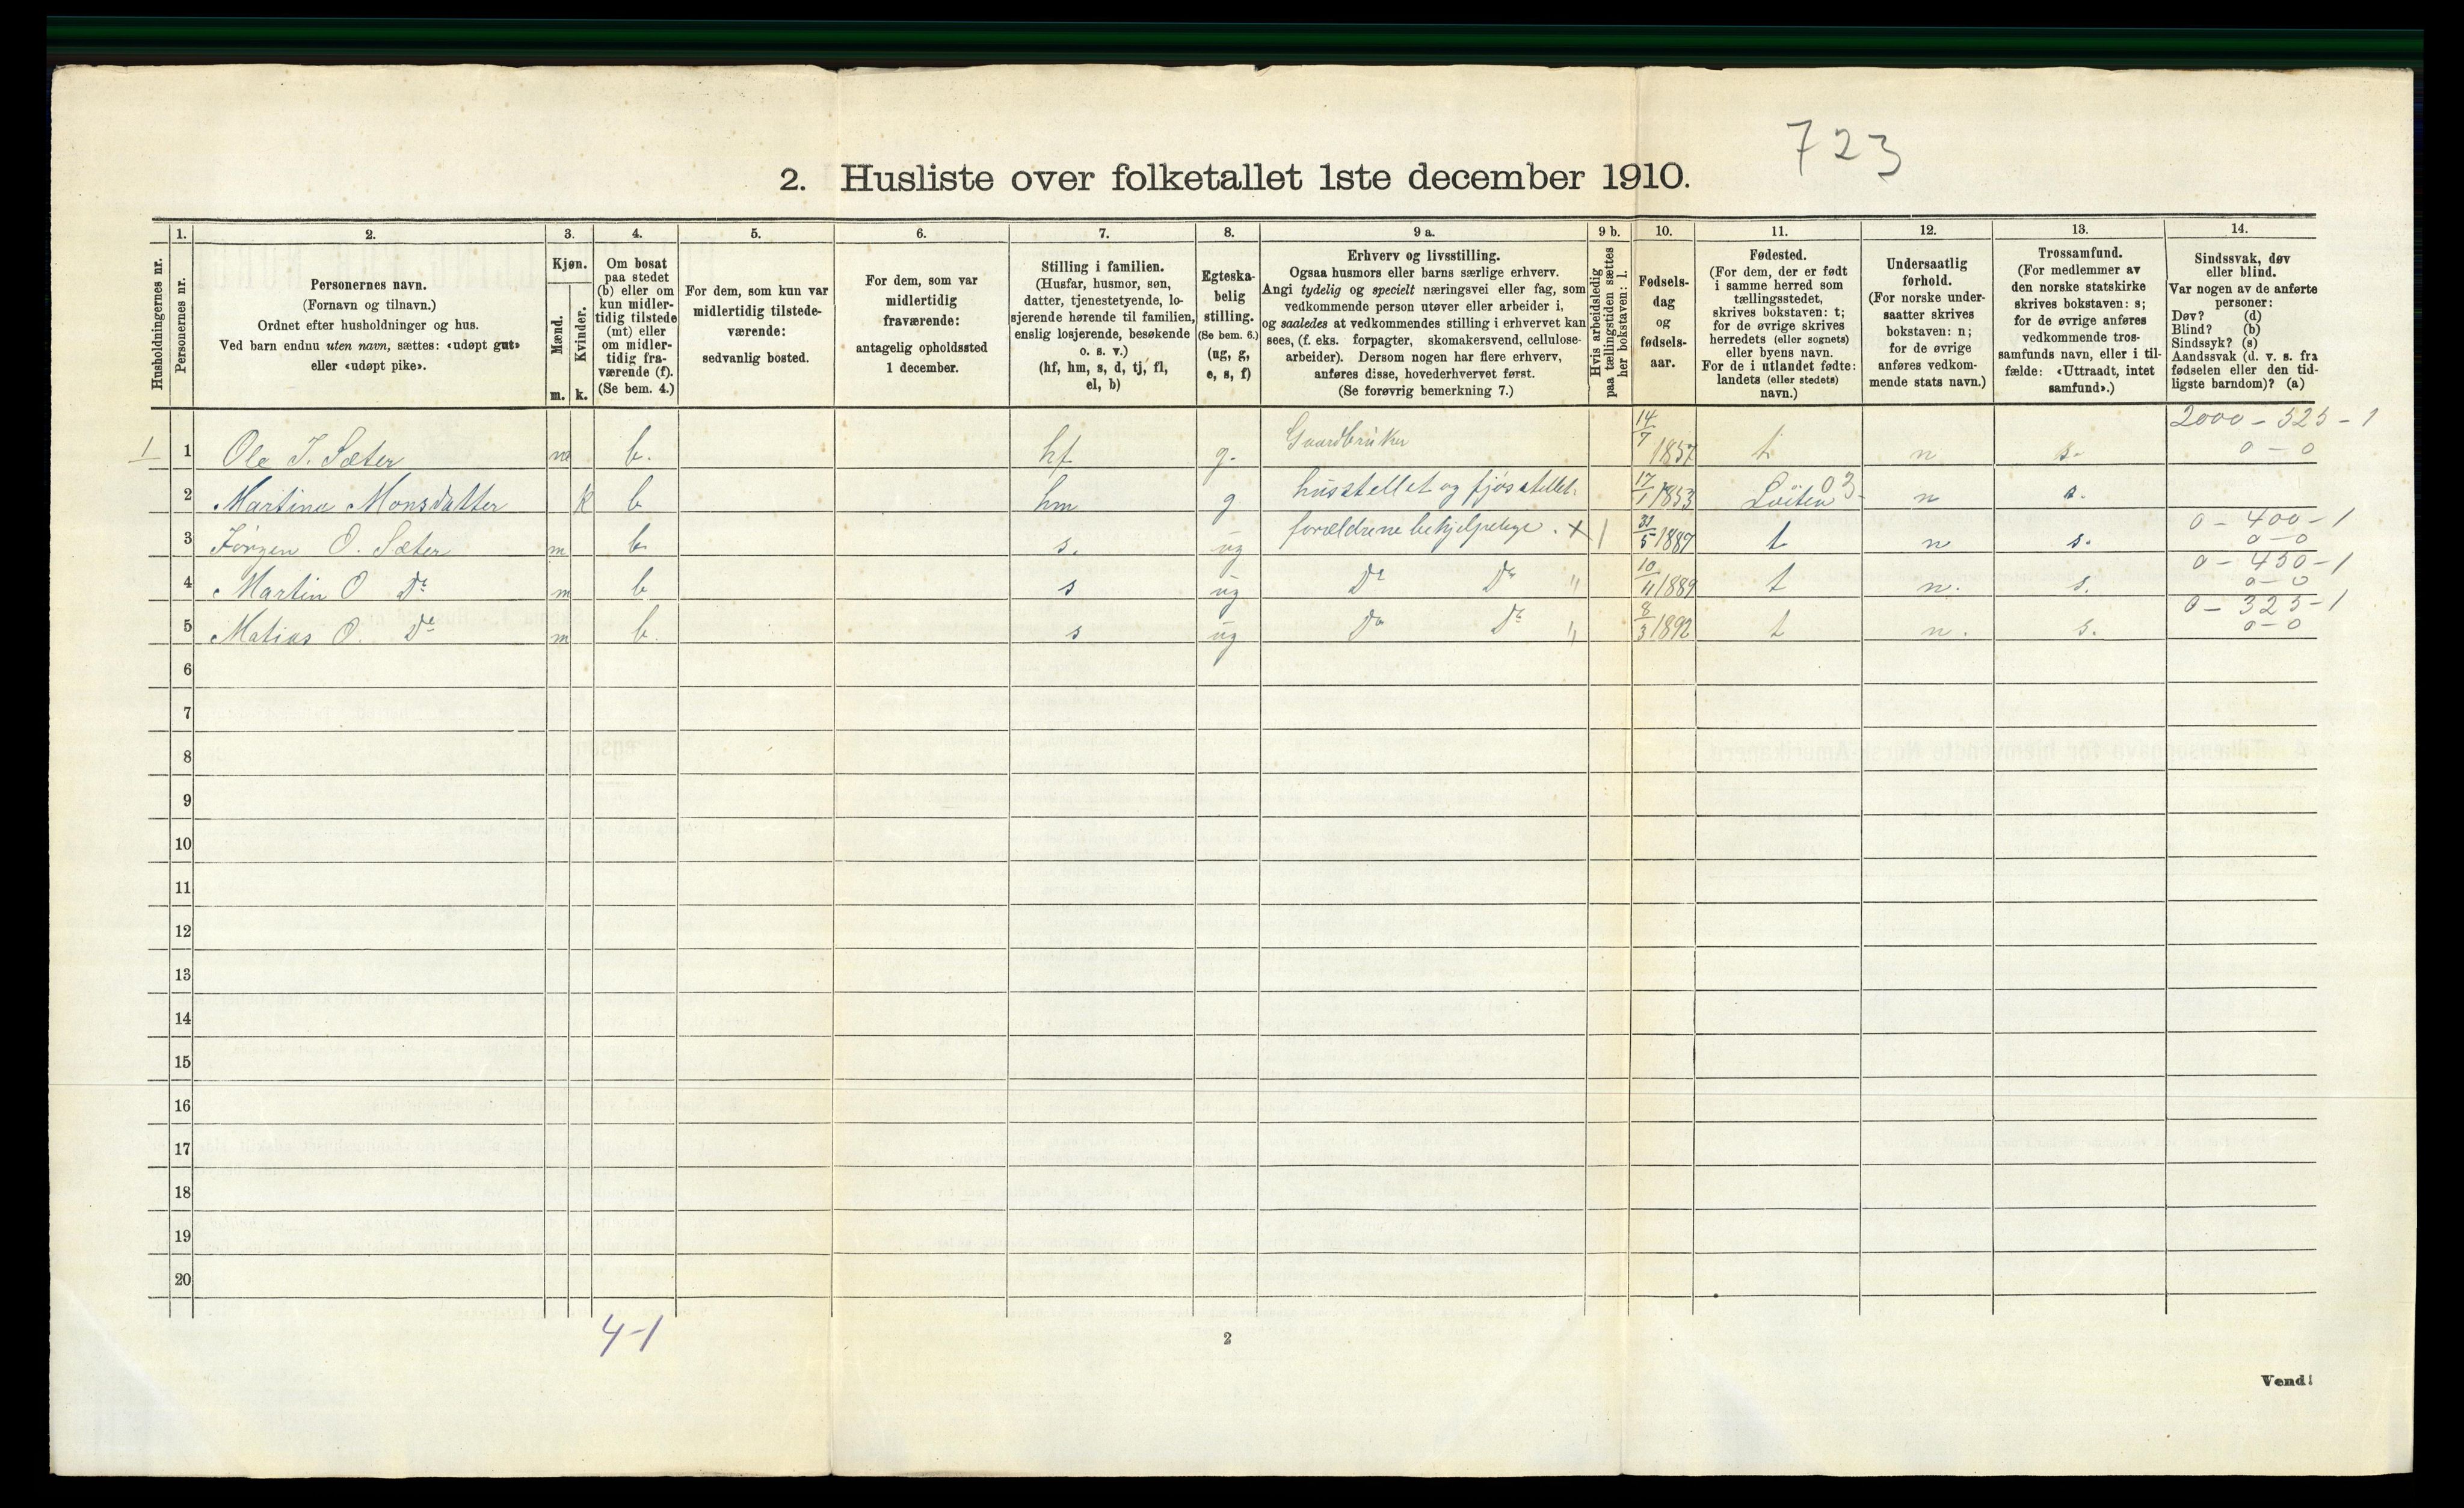 723
2. Husliste over folketallet 1ste december 1910.
Husholdningernes nr.
1. Personernes nr.
2. Personernes navn.
(Fornavn og tilnavn.)
Ordnet efter husholdninger og hus.
Ved barn endnu uten navn, sættes: «udøpt gut»
eller «udøpt pike».
3. Kjøn.
Mænd. m.
Kvinder. k.
4. Om bosat
paa stedet
(b) eller om
kun midler-
tidig tilstede
(mt) eller
om midler-
tidig fra-
værende (f).
(Se bem. 4.)
5. For dem, som kun var
midlertidig tilstede-
værende:
sedvanlig bosted.
6. For dem, som var
midlertidig
fraværende:
antagelig opholdssted
1 december.
7. Stilling i familien.
(Husfar, husmor, søn,
datter, tjenestetyende, lo-
sjerende hørende til familien,
enslig losjerende, besøkende
o. s. v.)
(hf, hm, s, d, tj, fl,
el, b)
8. Egteska-
belig
stilling.
(Se bem. 6.)
(ug, g,
e, s, f)
9 a. Erhverv og livsstilling.
Ogsaa husmors eller barns særlige erhverv.
Angi tydelig og specielt næringsvei eller fag, som
vedkommende person utøver eller arbeider i,
og saaledes at vedkommendes stilling i erhvervet kan
sees, (f. eks. forpagter, skomakersvend, cellulose-
arbeider). Dersom nogen har flere erhverv,
anføres disse, hovederhvervet først.
(Se forøvrig bemerkning 7.)
9 b. Hvis arbeidsledig
paa tællingstiden sættes
her bokstaven: l.
10. Fødsels-
dag
og
fødsels-
aar.
11. Fødested.
(For dem, der er født
i samme herred som
tællingsstedet,
skrives bokstaven: t;
for de øvrige skrives
herredets (eller sognets)
eller byens navn.
For de i utlandet fødte:
landets (eller stedets)
navn.)
12. Undersaatlig
forhold.
(For norske under-
saatter skrives
bokstaven: n;
for de øvrige
anføres vedkom-
mende stats navn.)
13. Trossamfund.
(For medlemmer av
den norske statskirke
skrives bokstaven: s;
for de øvrige anføres
vedkommende tros-
samfunds navn, eller i til-
fælde: «Uttraadt, intet
samfund».)
14. Sindssvak, døv
eller blind.
Var nogen av de anførte
personer:
Døv? (d)
Blind? (b)
Sindssyk? (s)
Aandssvak (d. v. s. fra
fødselen eller den tid-
ligste barndom)? (a)
1 1 Ole J. Sæter m b. hf g. Gaardbruker 14/7 1857 t n s. 2000 - 525 - 1
0 - 0
2 Martina Monsdatter k b hm g husstellet og fjøsstellet. 17/1 1853 Löiten 03 n s.
3 Jørgen O. Sæter m b. s. ug forældrene behjelpelige. x 1 31/5 1887 t n s. 0 - 400 - 1
0 - 0
4 Martin O Do m b s ug Do Do " 10/11 1889 t n. s. 0 - 450 - 1
0 - 0
5 Matias O. Do m b. s ug Do Do " 8/3 1892 t n. s. 0 - 325 - 1
0 - 0
6
7
8
9
10
11
12
13
14
15
16
17
18
19
20
4-1
2
Vend!